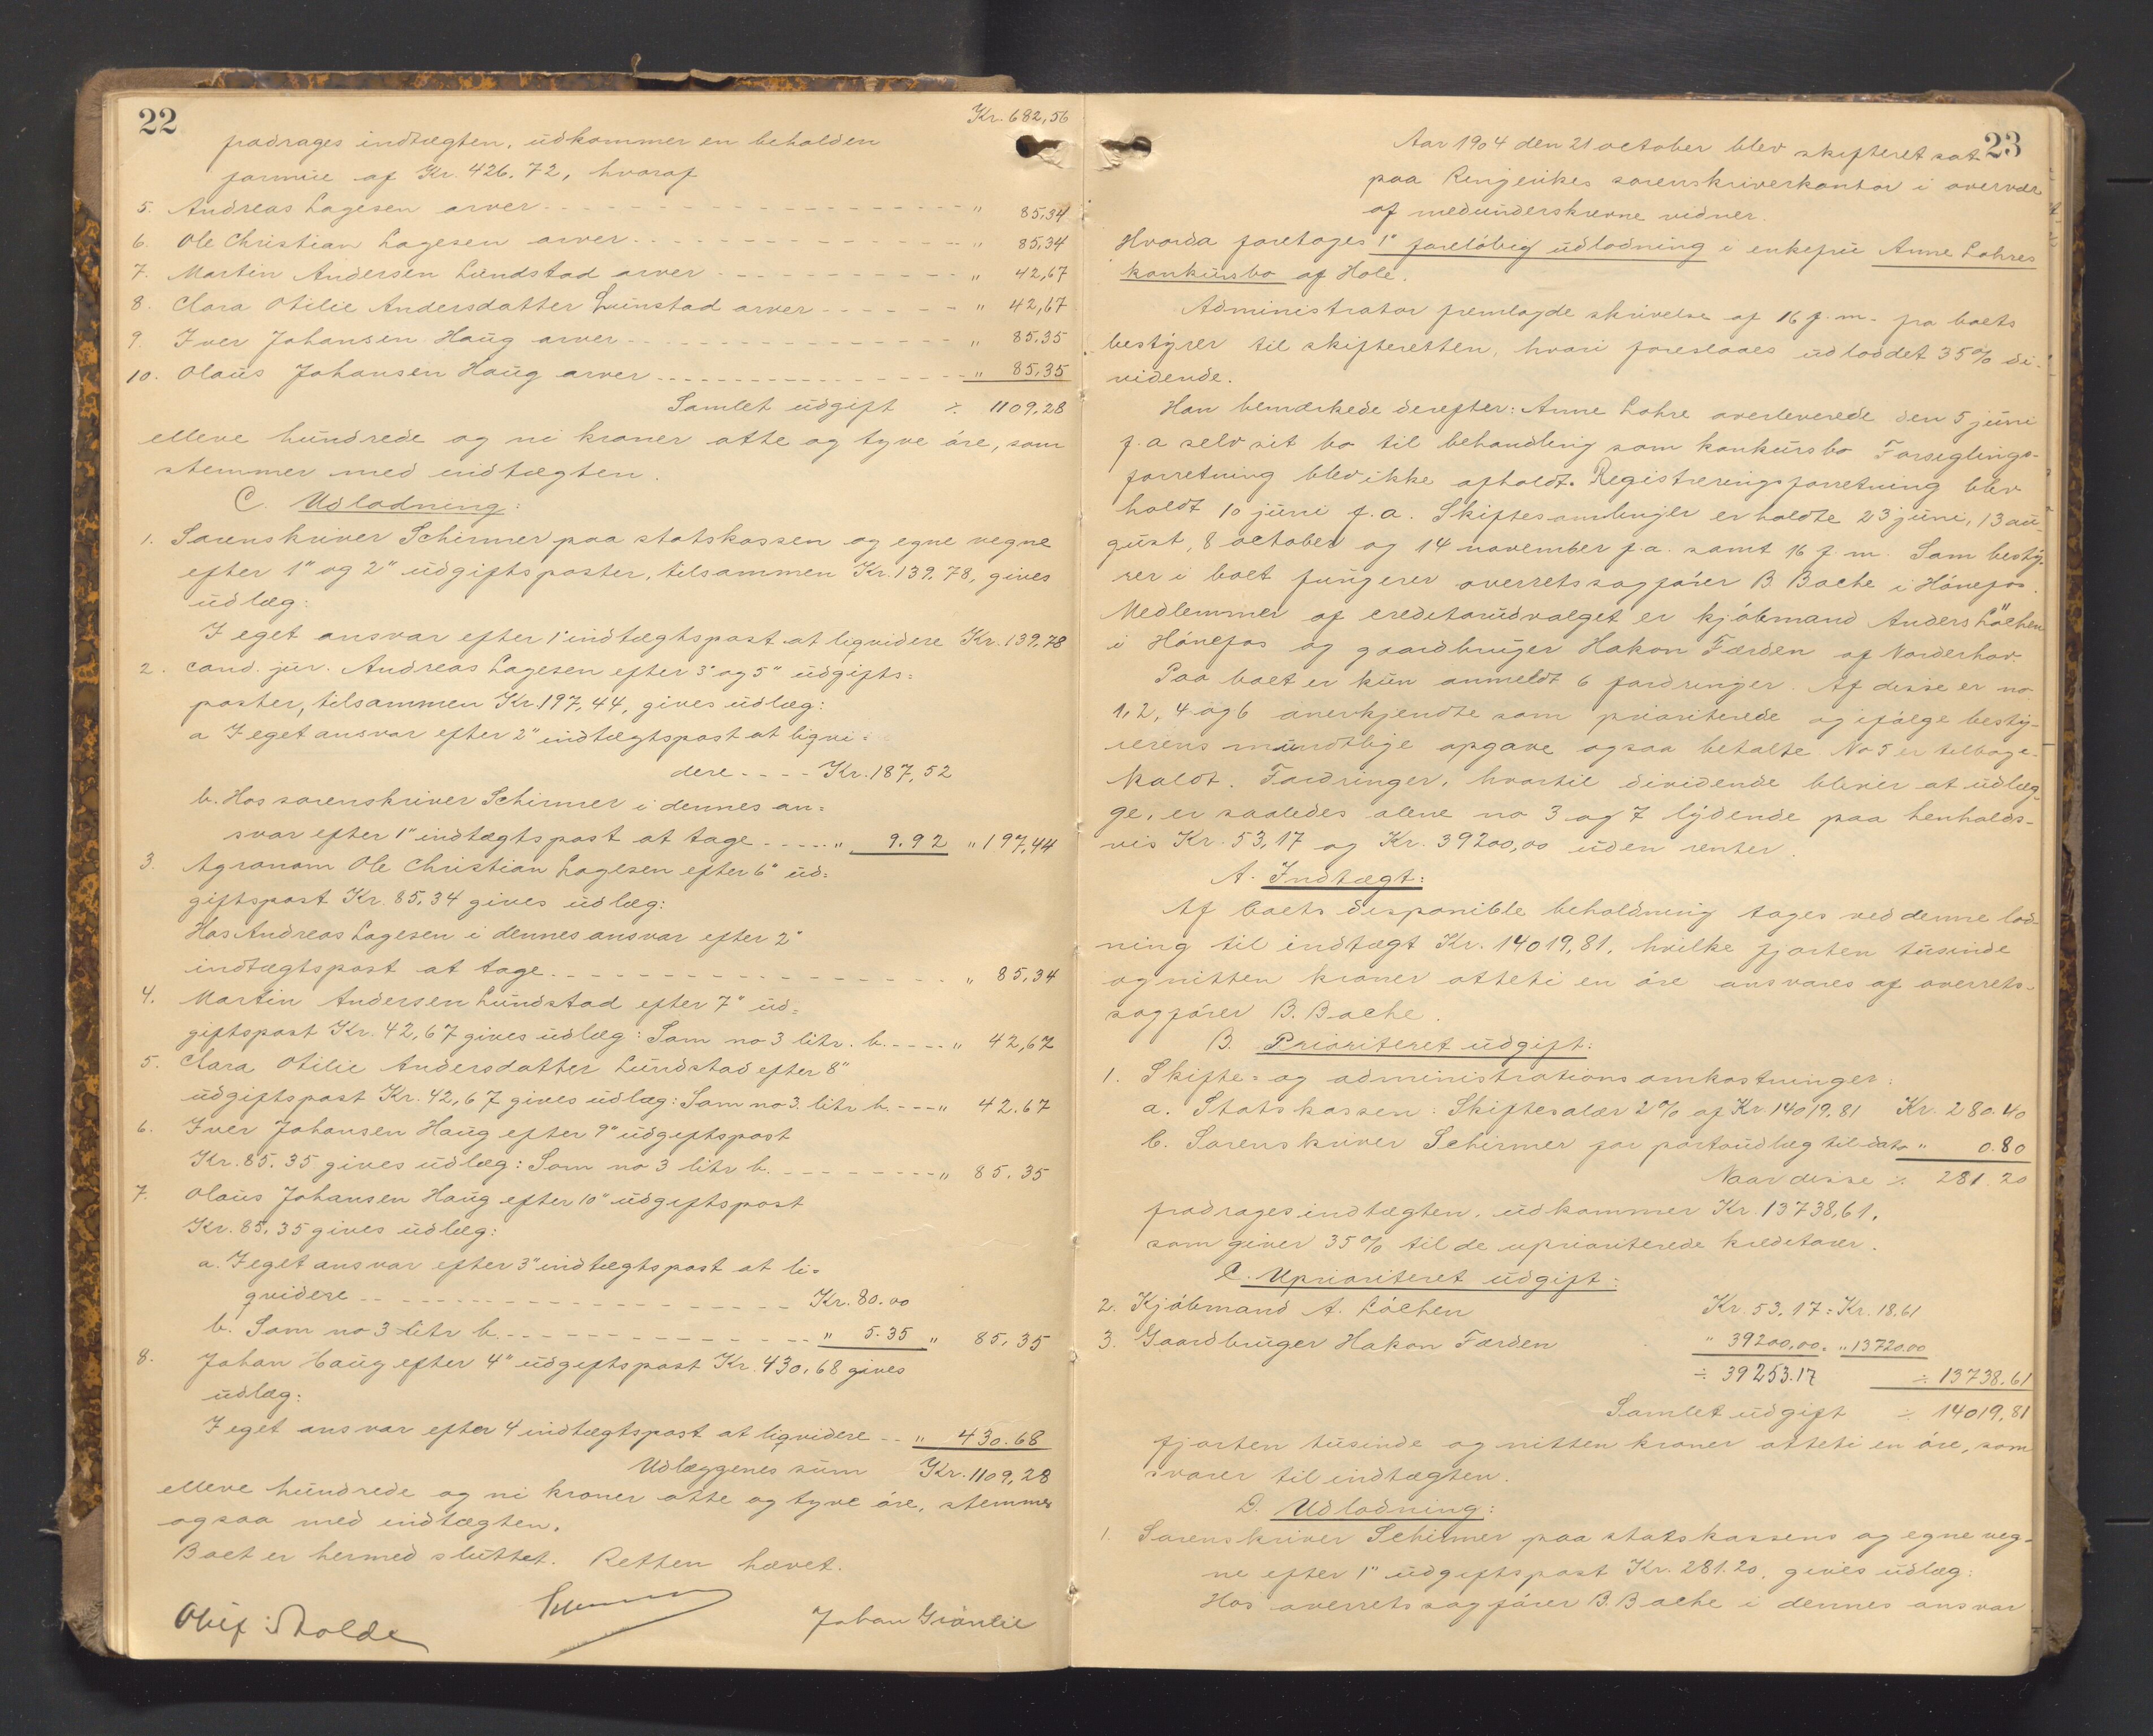 22
Kr. 682,56
fradrages indtægten, udkommer en beholden
formue af Kr. 426.72, hvoraf
5. Andreas Lagesen arver " 85,34
6. Ole Christian Lagesen arver " 85,34
7. Martin Andersen Lundstad arver " 42,67
8. Clara Otilie Andersdatter Lunstad arver " 42,67
9. Iver Johansen Haug arver " 85.35
10. Olaus Johansen Haug arver " 85,35
Samlet udgift ÷ 1109,28
elleve hundrede og ni kroner otte og tyve øre, som
stemmer med indtægten.
C. Udlodning:
1. Sorenskriver Schirmer paa statskassen og egne vegne
efter 1" og 2" udgiftsposter, tilsammen Kr. 139,78, gives
udlæg:
I eget ansvar efter 1" indtægtspost at liqvidere Kr. 139,78
2. cand. jur. Andreas Lagesen efter 3" og 5" udgifts=
poster, tilsammen Kr. 197,44, gives udlæg:
a I eget ansvar efter 2" indtægtspost at liqvi=
dere Kr. 187,52
b. Hos sorenskriver Schirmer i dennes an=
svar efter 1" indtægtspost at tage " 9.92 " 197,44
3. Agronom Ole Christian Lagesen efter 6" ud=
giftspost Kr. 85,34 gives udlæg:
Hos Andreas Lagesen i dennes ansvar efter 2"
indtægtspost at tage " 85,34
4. Martin Andersen Lundstad efter 7" ud=
giftspost Kr. 42,67 gives udlæg: Som no 3 litr. b. " 42,67
5. Clara Otilie Andersdatter Lundstad efter 8"
udgiftspost Kr. 42,67 gives udlæg: Som no 3. litr b. " 42.67
6. Iver Johansen Haug efter 9" udgiftspost
Kr. 85.35 gives udlæg: Som no 3 litr b. " 85.35
7. Olaus Johansen Haug efter 10" udgiftspost
Kr. 85,35 gives udlæg:
a. I eget ansvar efter 3" indtægtspost at li=
qvidere Kr. 80.00
b. Som no 3 litr b. " 5.35 " 85,35
8. Johan Haug efter 4" udgiftspost Kr. 430,68 gives
udlæg:
I eget ansvar efter 4 indtægtspost at liqvidere " 430.68
Udlæggenes sum Kr. 1109,28
elleve hundrede og ni kroner otte og tyve øre, stemmer
ogsaa med indtægten.
Boet er hermed sluttet. Retten hævet.
Schirmer
Oluf Skolde Johan Grønlie
23
Aar 1904 den 21 october blev skifteret sat
paa Ringerikes sorenskriverkontor i overvær
af medunderskrevne vidner.
Hvorda foretoges 1" foreløbig udlodning i enkefru Anne Lohres
konkursbo af Hole.
Administrator fremlagde skrivelse af 16 f. m. fra boets
bestyrer til skifteretten, hvori foreslaaes udloddet 35% di-
vidende.
Han bemærkede derefter: Anne Lohre overleverede den 5 juni
f.a selv sit bo til behandling som konkursbo Forseglings-
forretning blev ikke afholdt. Registreringsforretning blev
holdt 10 juni f.a. Skiftesamlinger er holdte 23 juni, 13 au-
gust, 8 october og 14 november f.a. samt 16 f.m. Som besty-
rer i boet fungerer overretssagfører B. Bache i Hønefos.
Medlemmer af creditorudvalget er kjøbmand Anders Løchen
i Hønefos og gaardbruger Hakon Færden af Norderhov.
Paa boet er kun anmeldt 6 fordringer. Af disse er no
1, 2, 4 og 6 anerkjendte som prioriterede og ifølge besty-
rerens mundtlige opgave ogsaa betalte. No 5 er tilbage-
kaldt. Fordringer, hvortil dividende bliver at udlæg-
ge, er saaledes alene no 3 og 7 lydende paa henholds-
vis Kr. 53,17 og Kr. 39200,00 uden renter.
A. Indtægt:
Af boets disponible beholdning tages ved denne lod-
ning til indtægt Kr. 14019,81, hvilke fjorten tusinde
og nitten kroner otteti en øre ansvares af overrets-
sagfører B. Bache.
B. Prioriteret udgift:
1. Skifte= og administrationsomkostninger:
a. Statskassen: Skiftesalær 2% af Kr. 14019,81 Kr. 280.40
b. Sorenskriver Schirmer for portoudlæg til dato " 0.80
Naar disse ÷ 281.20
fradrages indtægten, udkommer Kr. 13738,61,
som giver 35% til de uprioriterede kreditorer.
C. Uprioriteret udgift:
2. Kjøbmand A. Løchen Kr. 53,17 = Kr. 18,61
3. Gaardbruger Hakon Færden " 39200,00 = " 13720,00
÷ 39253.17 ÷ 13738,61
Samlet udgift ÷ 14019,81
fjorten tusinde og nitten kroner otteti en øre, som
svarer til indtægten.
D. Udlodning:
1. Sorenskriver Schirmer paa statskassens og egne veg-
ne efter 1" udgiftspost Kr. 281.20, gives udlæg:
Hos overretssagfører B. Bache i dennes ansvar